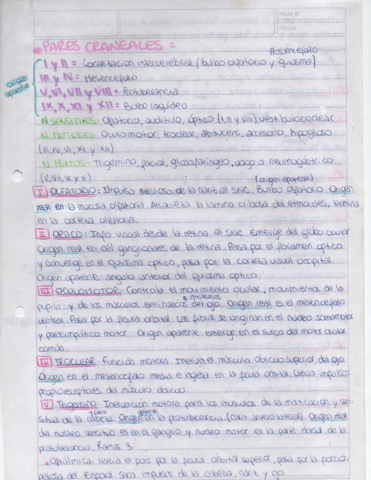 HOJA Nº
FECHA
PARES CRANEALES =
Prosencéfalo
I y II = Localización intercerebral (bulbo olfatorio y quiasma)
III y IV = Mesencéfalo
V, VI, VII y VIII = Protuberancia
IX, X, XI y XII = Bulbo raquídeo
origen aparente
N. SENSITIVOS: Olfatorio, auditivo, óptico (I, II y VIII) vestibulococlear
N. MOTORES: Oculomotor, troclear, abducens, accesorio, hipogloso
(III, IV, VI, XI y XII)
N. MIXTOS: Trigemino, facial, glosofaríngeo, vago o neumogástrico
(V, VII, IX y X) (origen aparente)
I OLFATORIO: Impulso nervioso de la nariz al SNC. Bulbo olfatorio. Origen
real en la mucosa olfatoria. Atraviesa la lamina cribosa del etmoides, termina
en la corteza olfatoria.
II OPTICO: Info visual desde la retina al SNC. Emerge del globo ocular.
Origen real en cel ganglionares de la retina. Pasa por el foramen optico
y converge en el quiasma optico, pasa por la corteza visual occipital.
Origen aparente: angulo anterior del quiasma optico.
III OCULOMOTOR: Controla el movimiento ocular, movimientos de la
pupila y de los musculos extrinsecos del ojo. Origen real es el mesencefalo
ventral. Pasa por la fisura orbital. Las fibras se originan en el núcleo somatomotor
y parasimpático motor. Origen aparente: emerge en el surco del motor ocular
común.
IV TROCLEAR: Función motora. Inerva el músculo oblicuo superior del ojo.
Origen en el mesencefalo medio e ingresa en la fisura orbital. Lleva impulsos
propioceptores del músculo oblicuo.
V Trigemino: Inervación motora para los musculos de la masticación y sen-
sitiva de la cabeza. Origen en la protuberancia (cara anterolateral). Origen real
del nucleo sensitivo es en el ganglio y nucleo motor en la parte dorsal de la
protuberancia. Ramas 3.
Oftálmica: inerva el pasa por la fisura orbital superior, pasa por la porción
del Lleva impulsos de la cabeza, nariz y ojo.